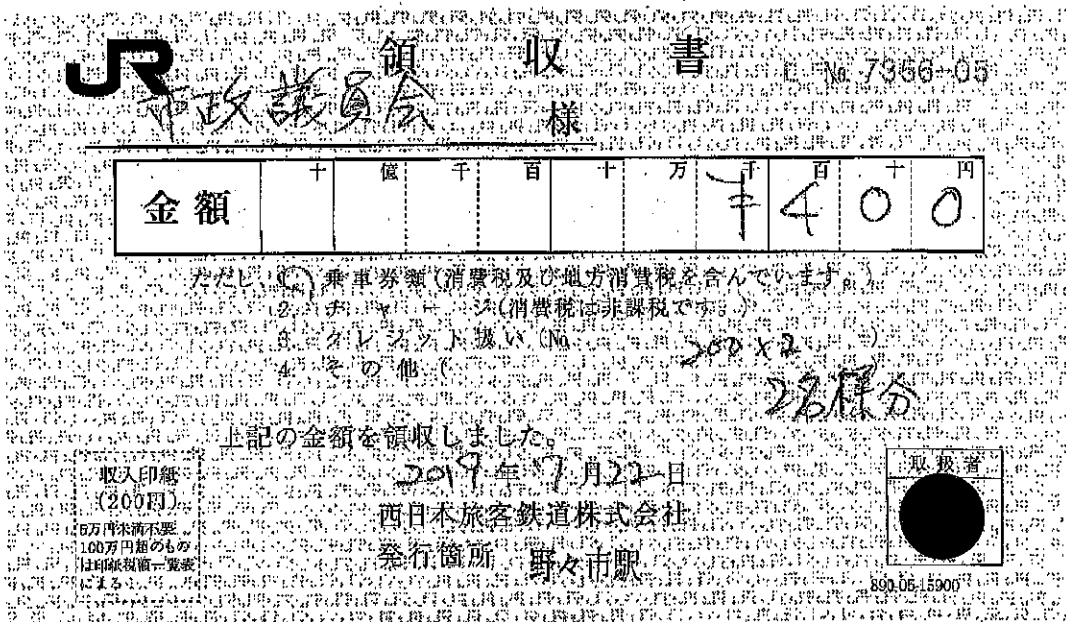 JR 領収書 E No. 7366-05
市政議員会 様
十億千百十万千百十円
金額 ¥400
ただし、1. 乗車券類(消費税及び地方消費税を含んでいます。)
2. チャージ(消費税は非課税です。)
3. クレジット扱い(No. )
4. その他( 200×2
2名様分
上記の金額を領収しました。
2019年7月22日
西日本旅客鉄道株式会社
発行箇所 野々市駅
収入印紙
(200円)
5万円未満不要
100万円超のもの
は印紙税額一覧表
による
取扱者
890-05-15900